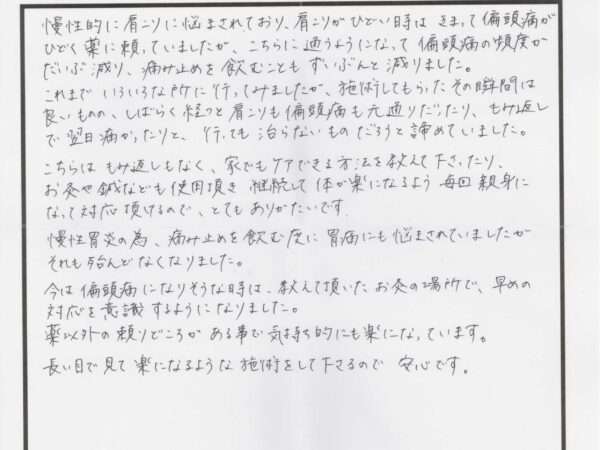 慢性的に肩こりに悩まされており、肩こりがひどい時は きまって偏頭痛が
ひどく薬に頼っていましたが、こちらに通うようになって 偏頭痛の頻度が
だいぶ減り、痛み止めを飲むことも ずいぶんと減りました。
これまで いろいろな所に行ってみましたが、施術してもらったその瞬間は
良いものの、しばらく経つと肩こりも偏頭痛も元通りだったり、もみ返し
で翌日痛かったりと、行っても治らないものだろうと諦めていました。
こちらは もみ返しもなく、家でもケアできる方法を教えて下さったり、
お灸や鍼なども使用頂き 継続して体が楽になるよう 毎回親身に
なって対応頂けるので、とても ありがたいです。
慢性胃炎の為、痛み止めを飲む度に胃痛にも悩まされていましたが
それも殆んどなくなりました。
今は偏頭痛になりそうな時は、教えて頂いたお灸の場所で、早めの
対応を意識するようになりました。
薬以外の頼りどころが ある事で気持ち的にも楽になっています。
長い目で見て楽になるような 施術をして下さるので 安心です。